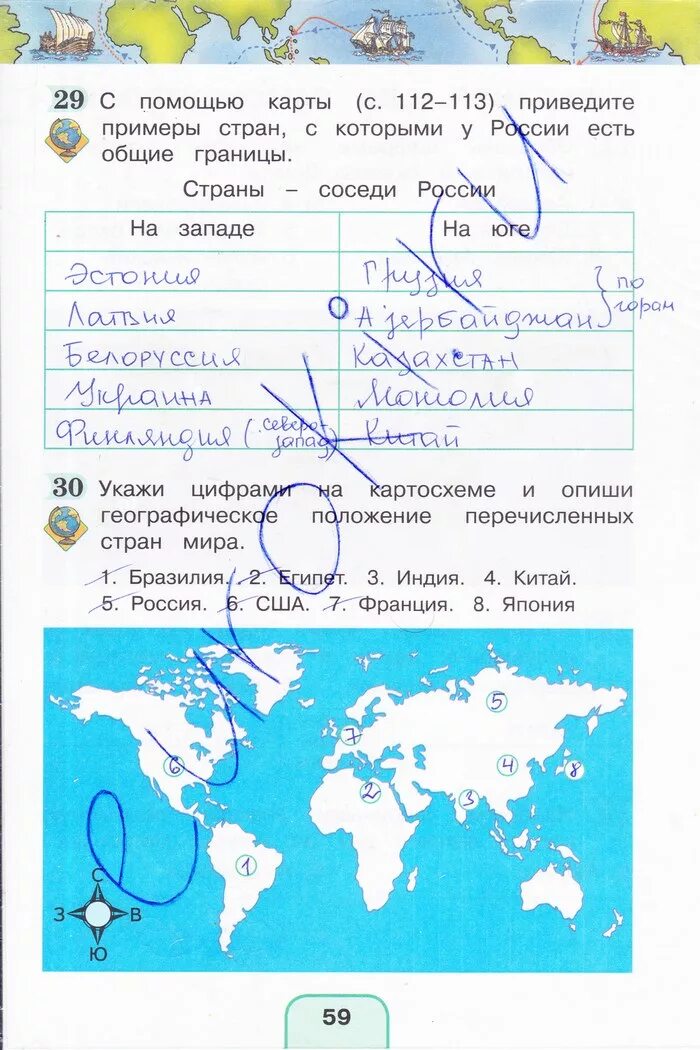 29 С помощью карты (с. 112–113) приведите
примеры стран, с которыми у России есть
общие границы.
Страны – соседи России
На западе На юге
Эстония Грузия } по
Латвия Азербайджан } горам
Белоруссия Казахстан
Украина Монголия
Финляндия (северо-запад) Китай
30 Укажи цифрами на картосхеме и опиши
географическое положение перечисленных
стран мира.
1. Бразилия. 2. Египет. 3. Индия. 4. Китай.
5. Россия. 6. США. 7. Франция. 8. Япония
5
7
6
4
8
2
3
1
С
З В
Ю
59